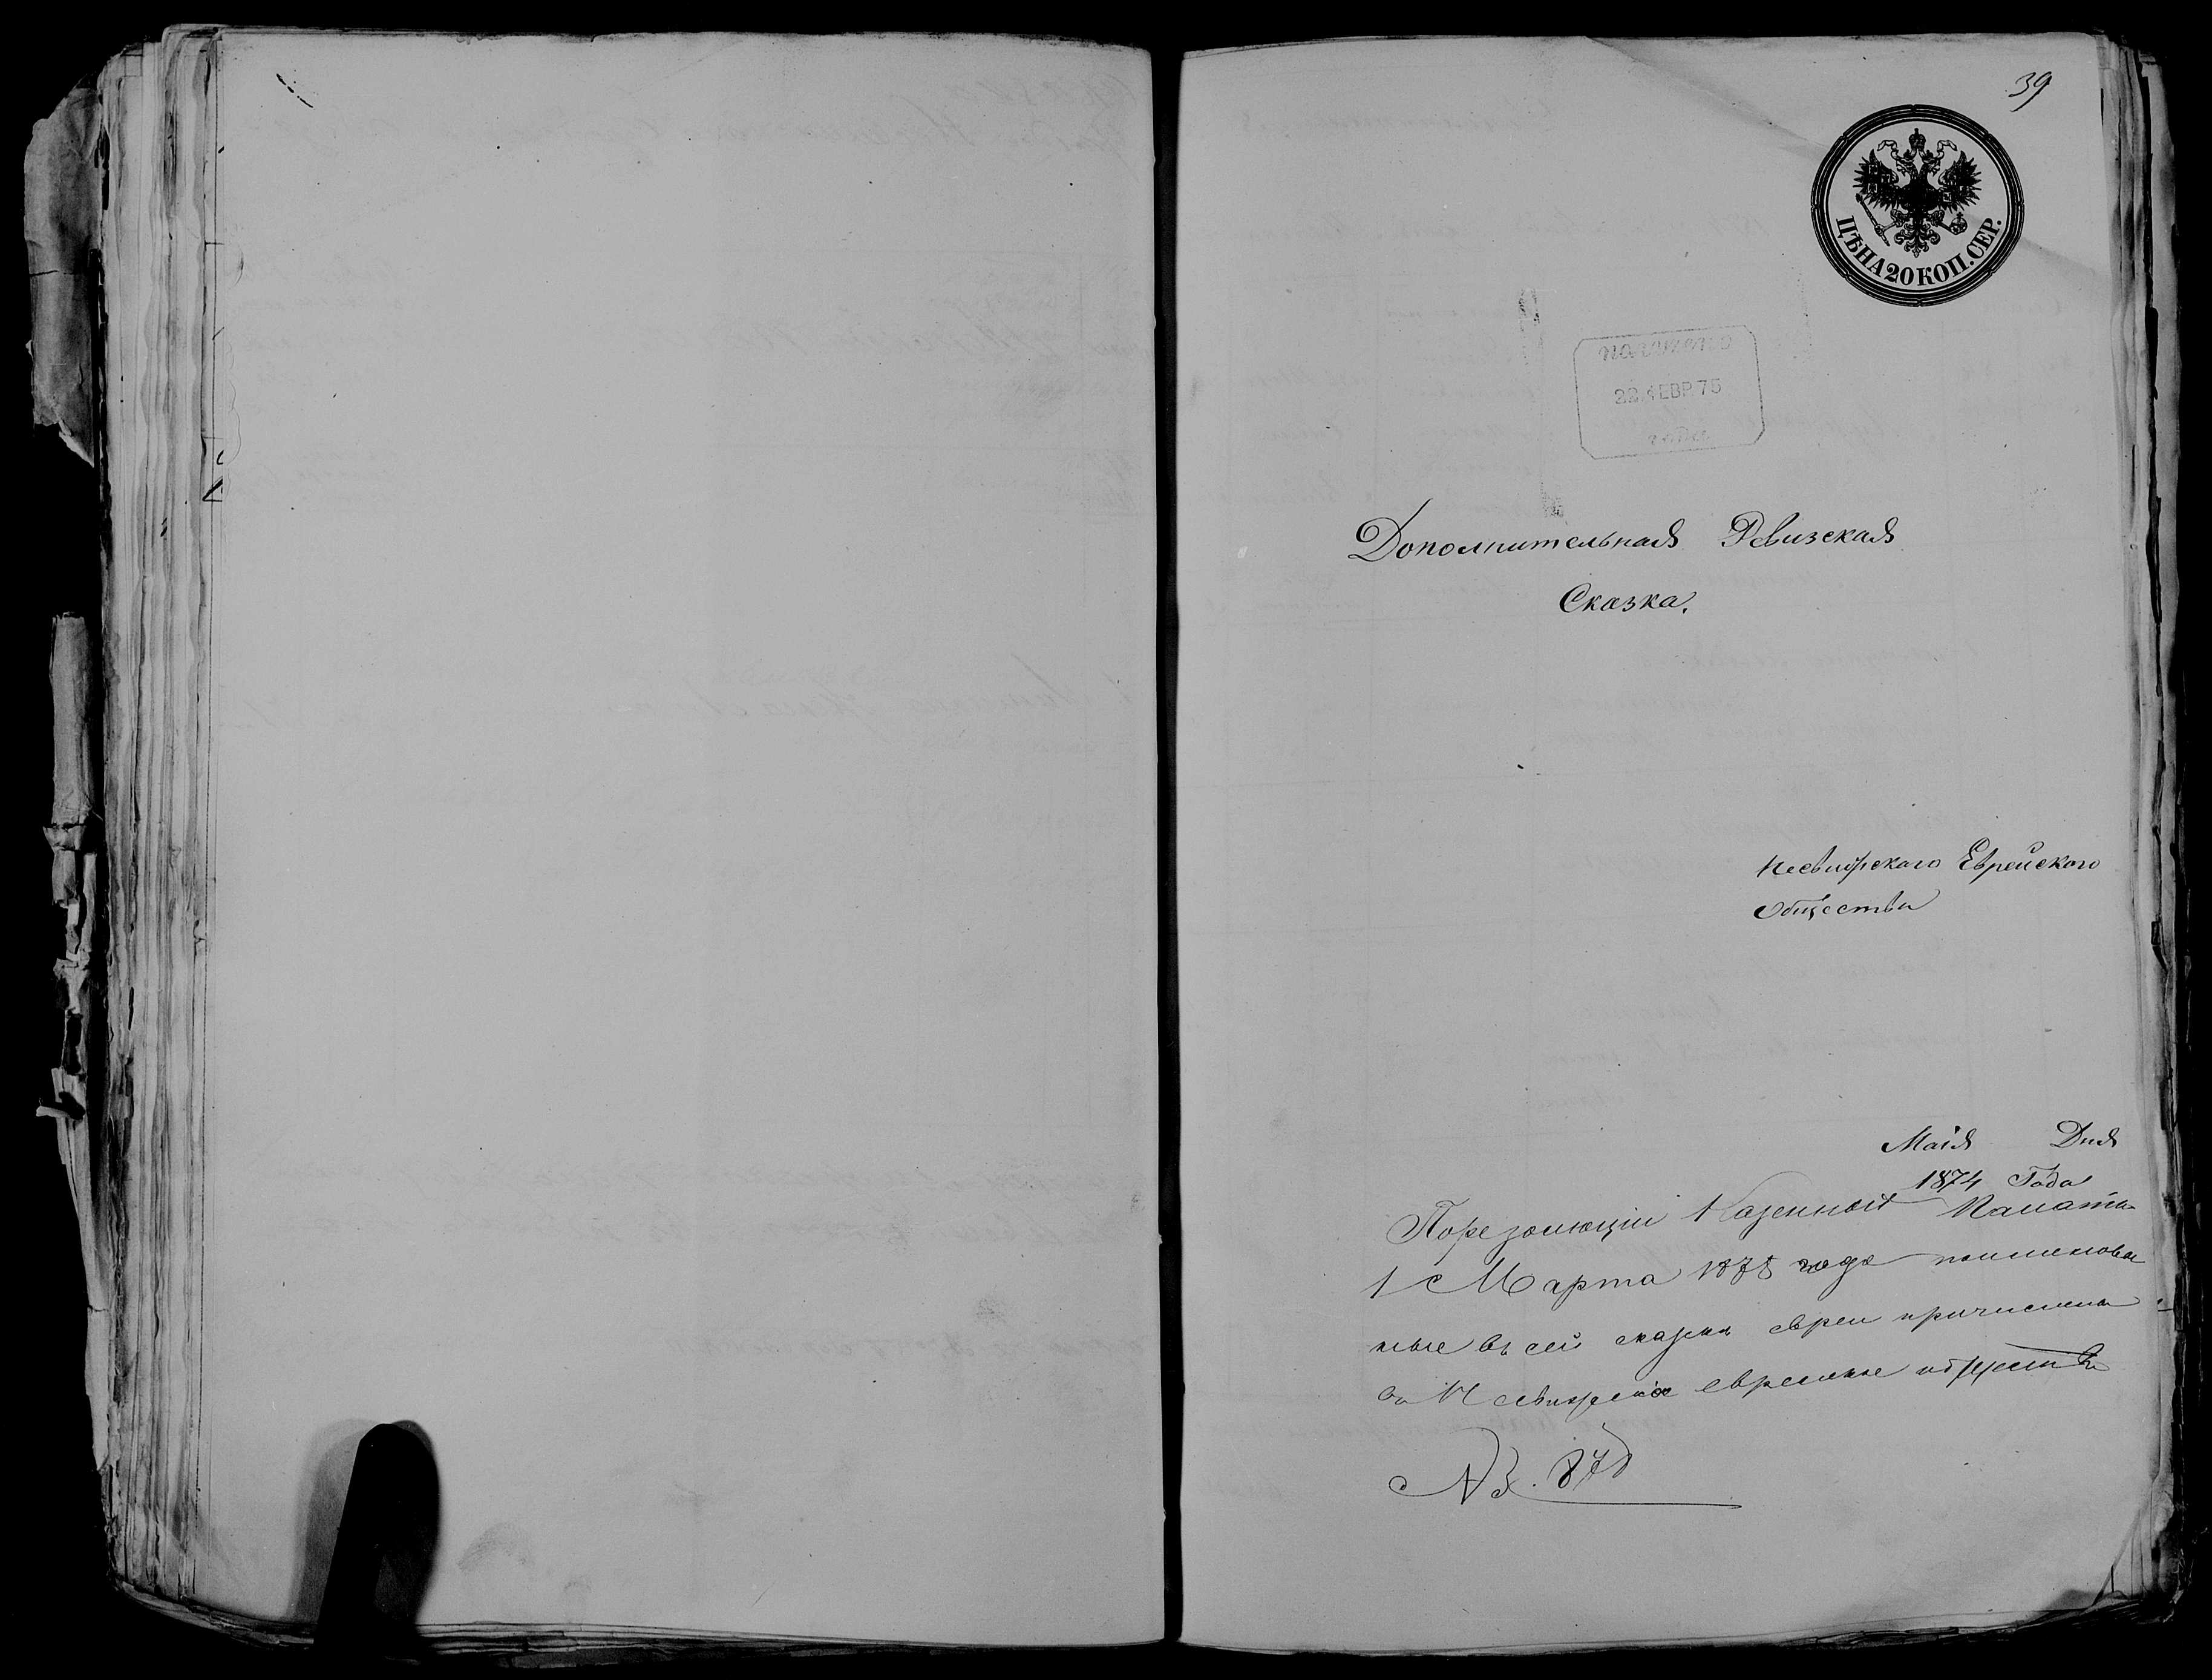 39
ЦѢНА 20 КОП. СЕР.
получено
22 ФЕВР 75
года
Дополнительная Ревизская
Сказка.
Несвижского Еврейского
Общества
Маія Дня
1874 Года
По резолюціи Казенной Палаты
1 Марта 1875 года поименован
ные въ сей сказкѣ евреи причислены
въ Несвижское еврейское общество
№ 878